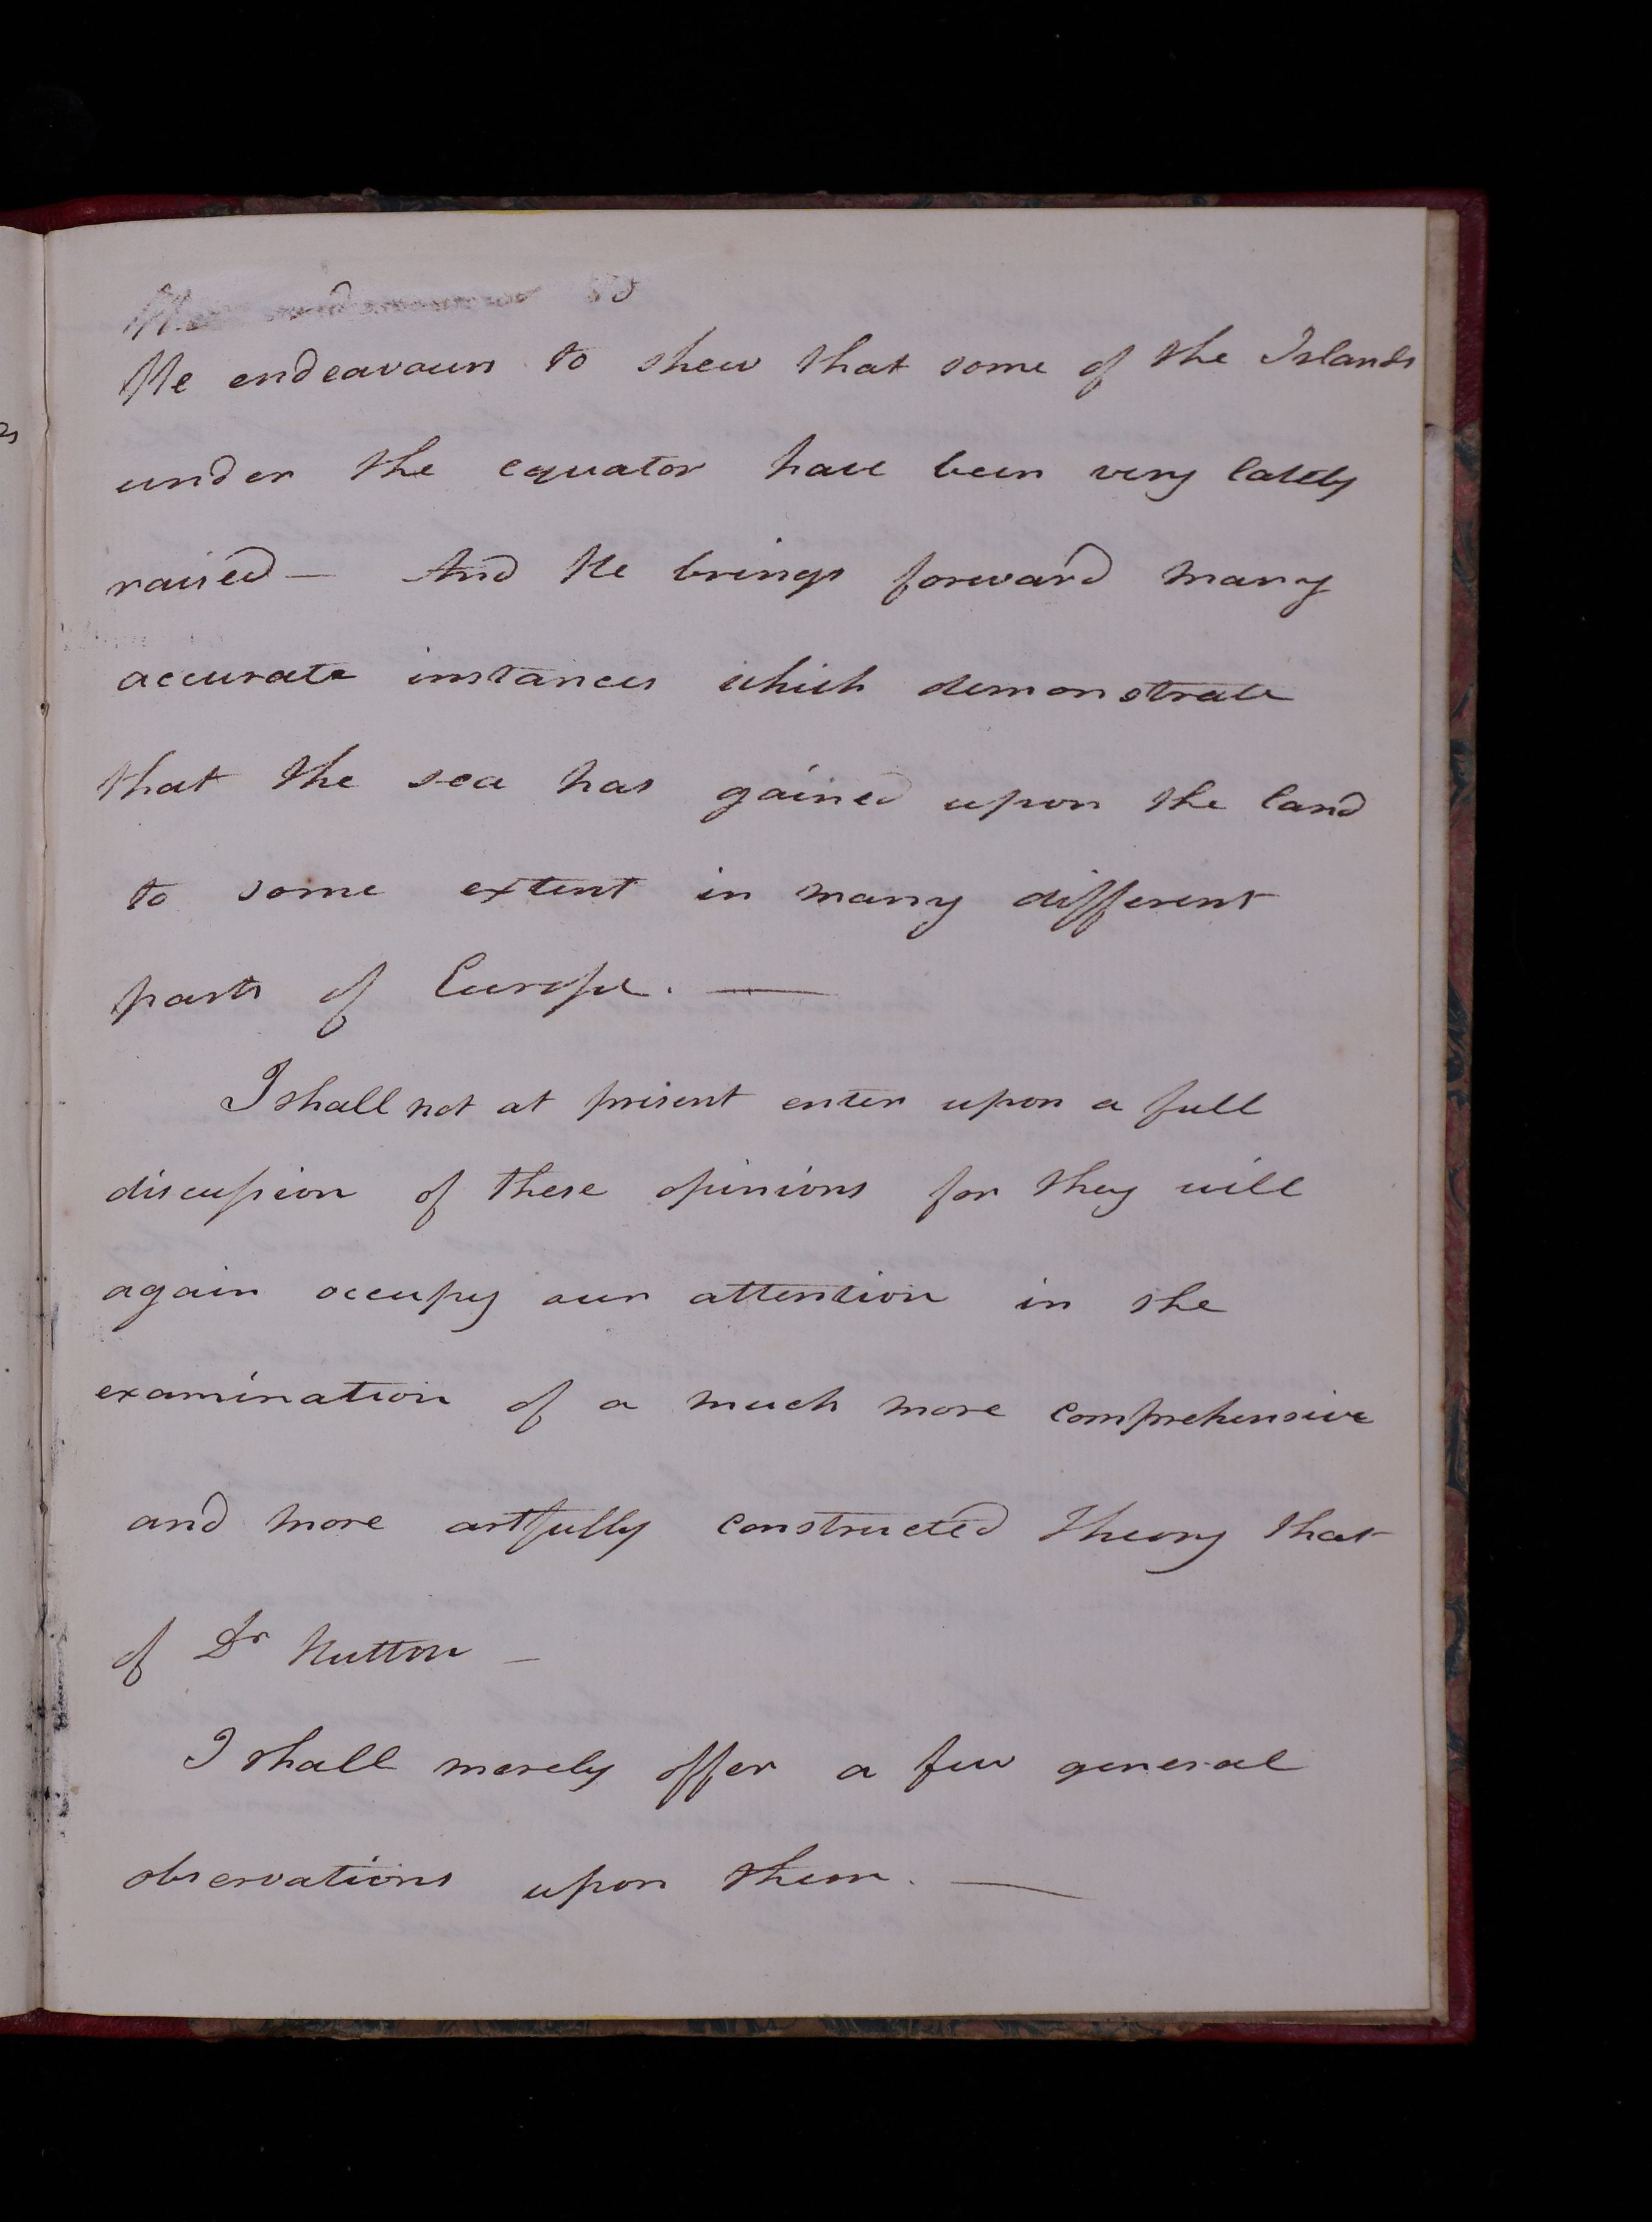 He endeavours to shew that some of the Islands
under the equator have been very lately
raised — And He brings forward many
accurate instances which demonstrate
that the sea has gained upon the land
to some extent in many different
parts of Europe. —
I shall not at present enter upon a full
discussion of these opinions for they will
again occupy our attention in the
examination of a much more comprehensive
and more artfully constructed theory that
of Dr Hutton —
I shall merely offer a few general
observations upon them. —